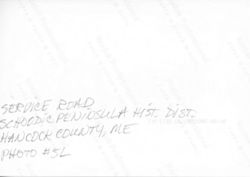 SERVICE ROAD
SCHOODIC PENINSULA HIST. DIST.
HANCOCK COUNTY, ME
PHOTO #5L